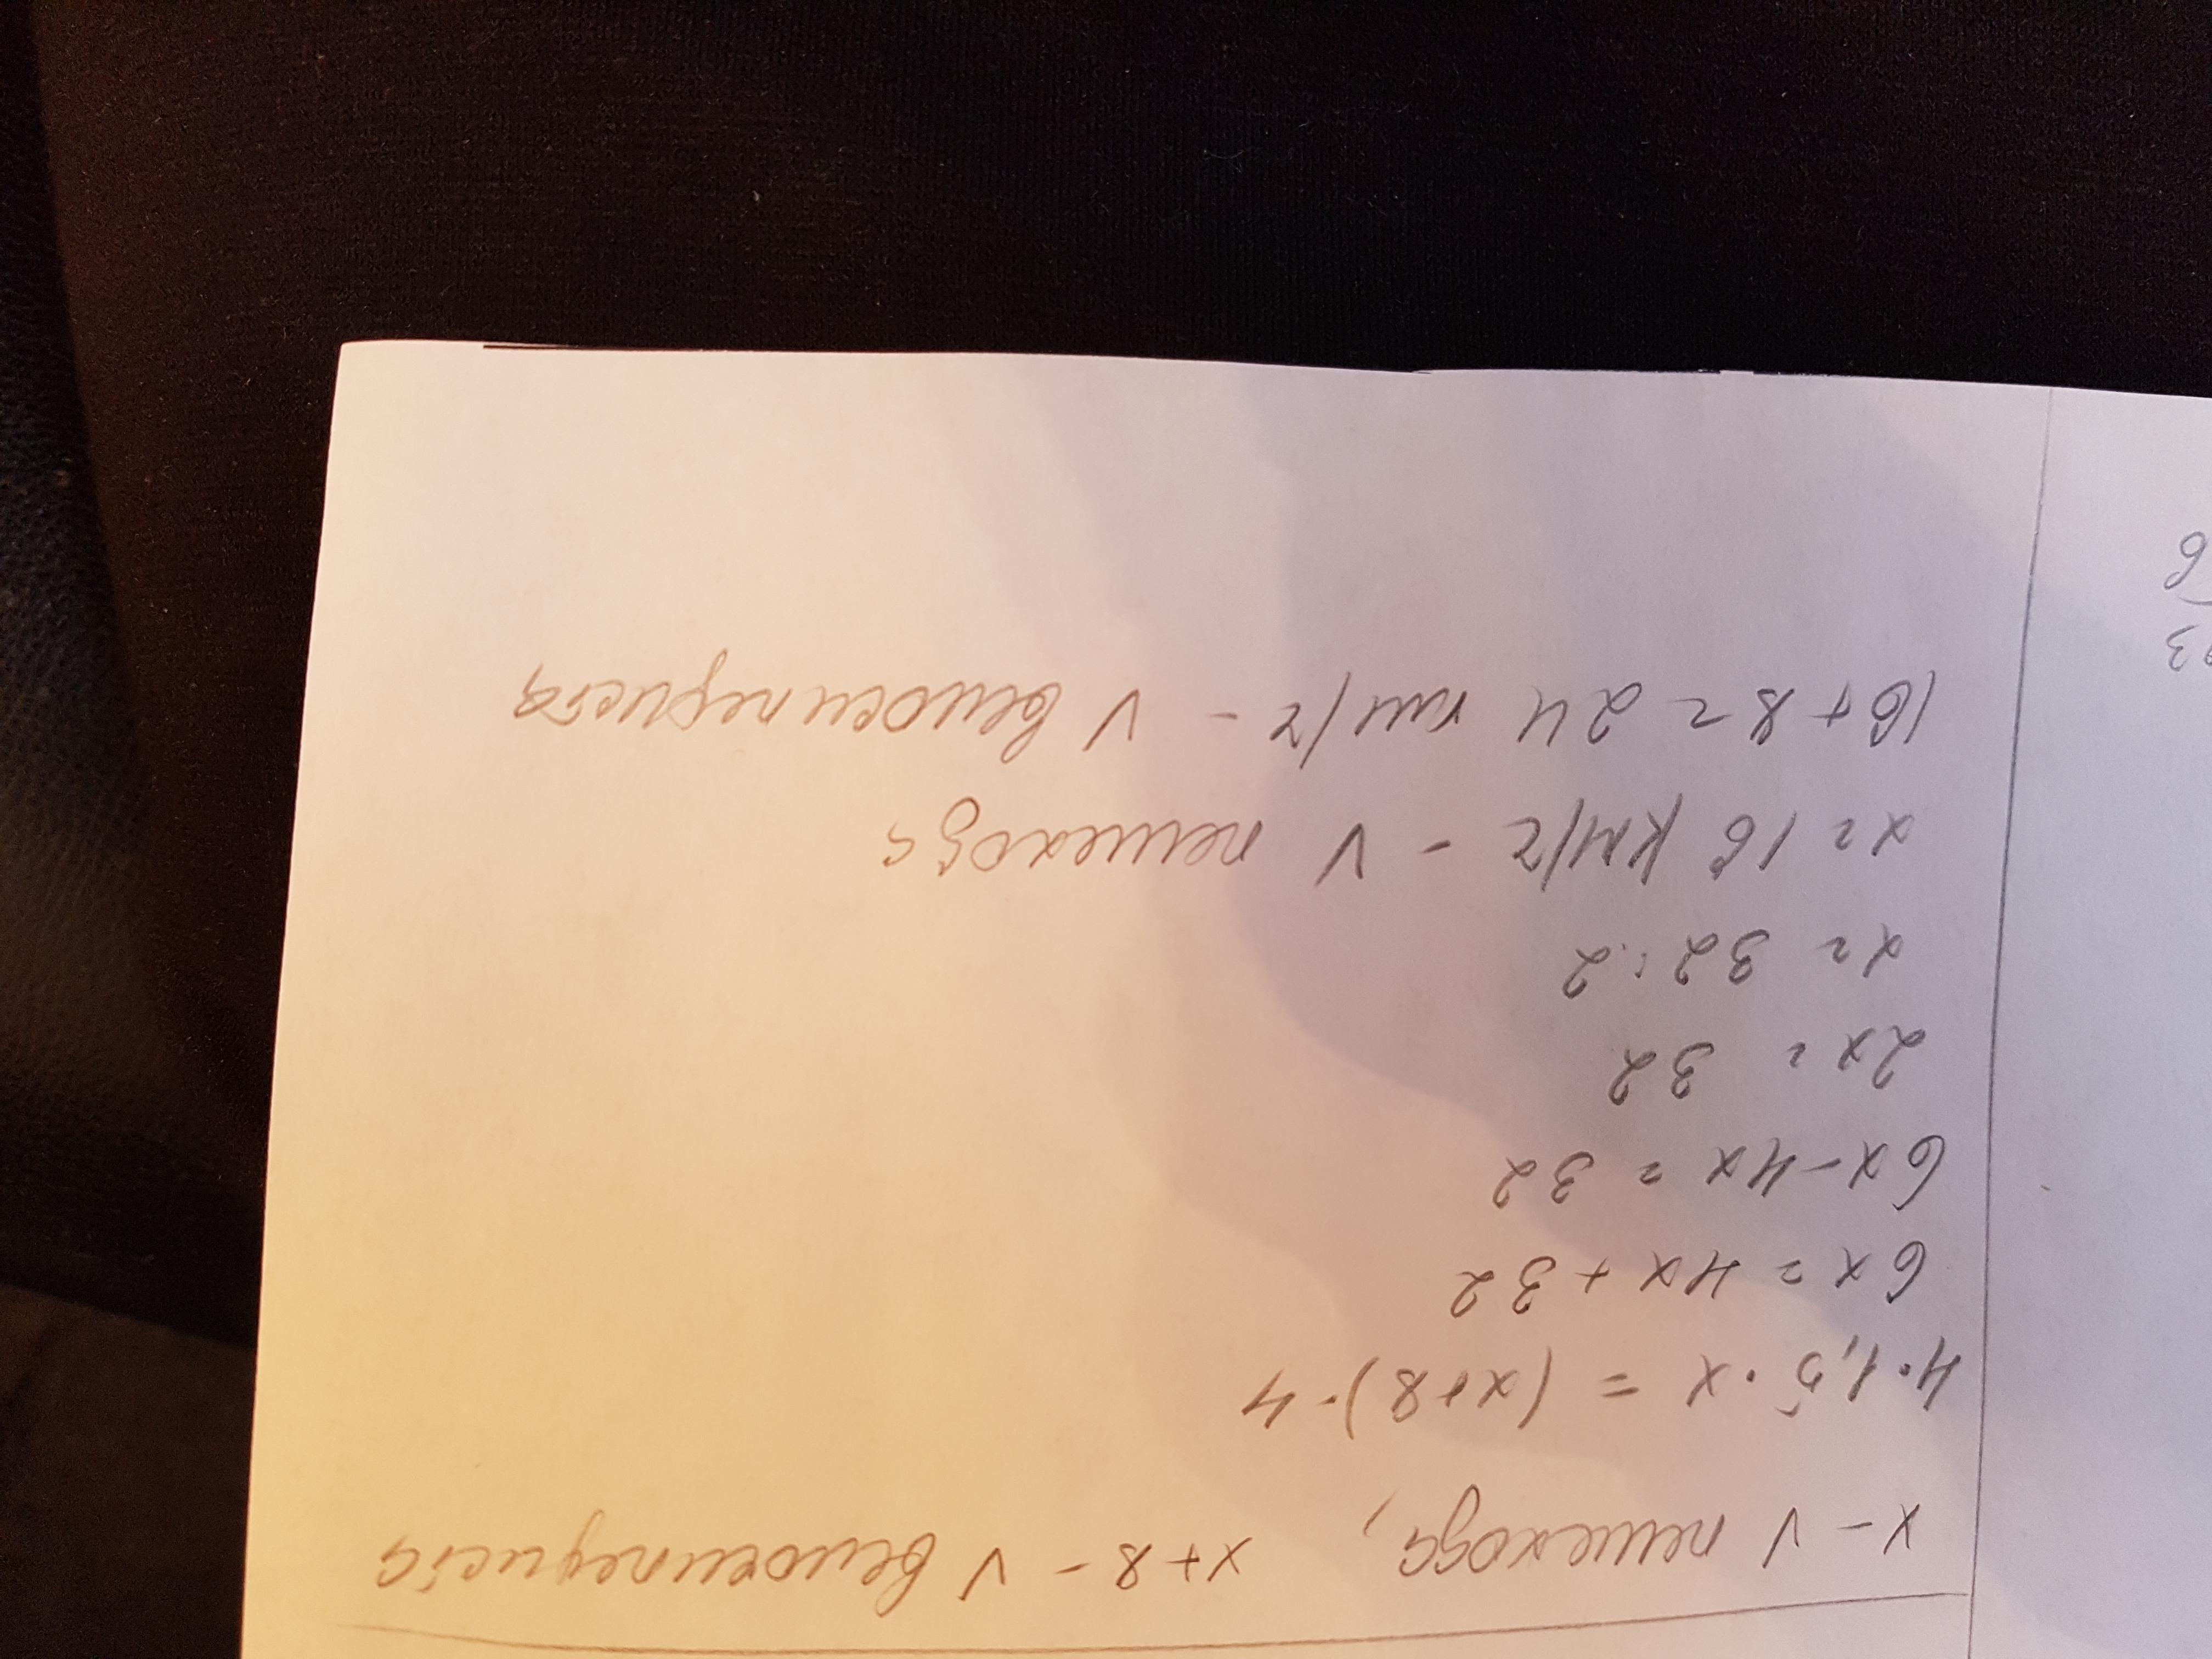 x - V пешехода, x+8 - V велосипедиста
4·1,5·x = (x+8)·4
6x = 4x + 32
6x - 4x = 32
2x = 32
x = 32:2
x = 16 км/г - V пешехода
16 + 8 = 24 км/г - V велосипедиста
3
6